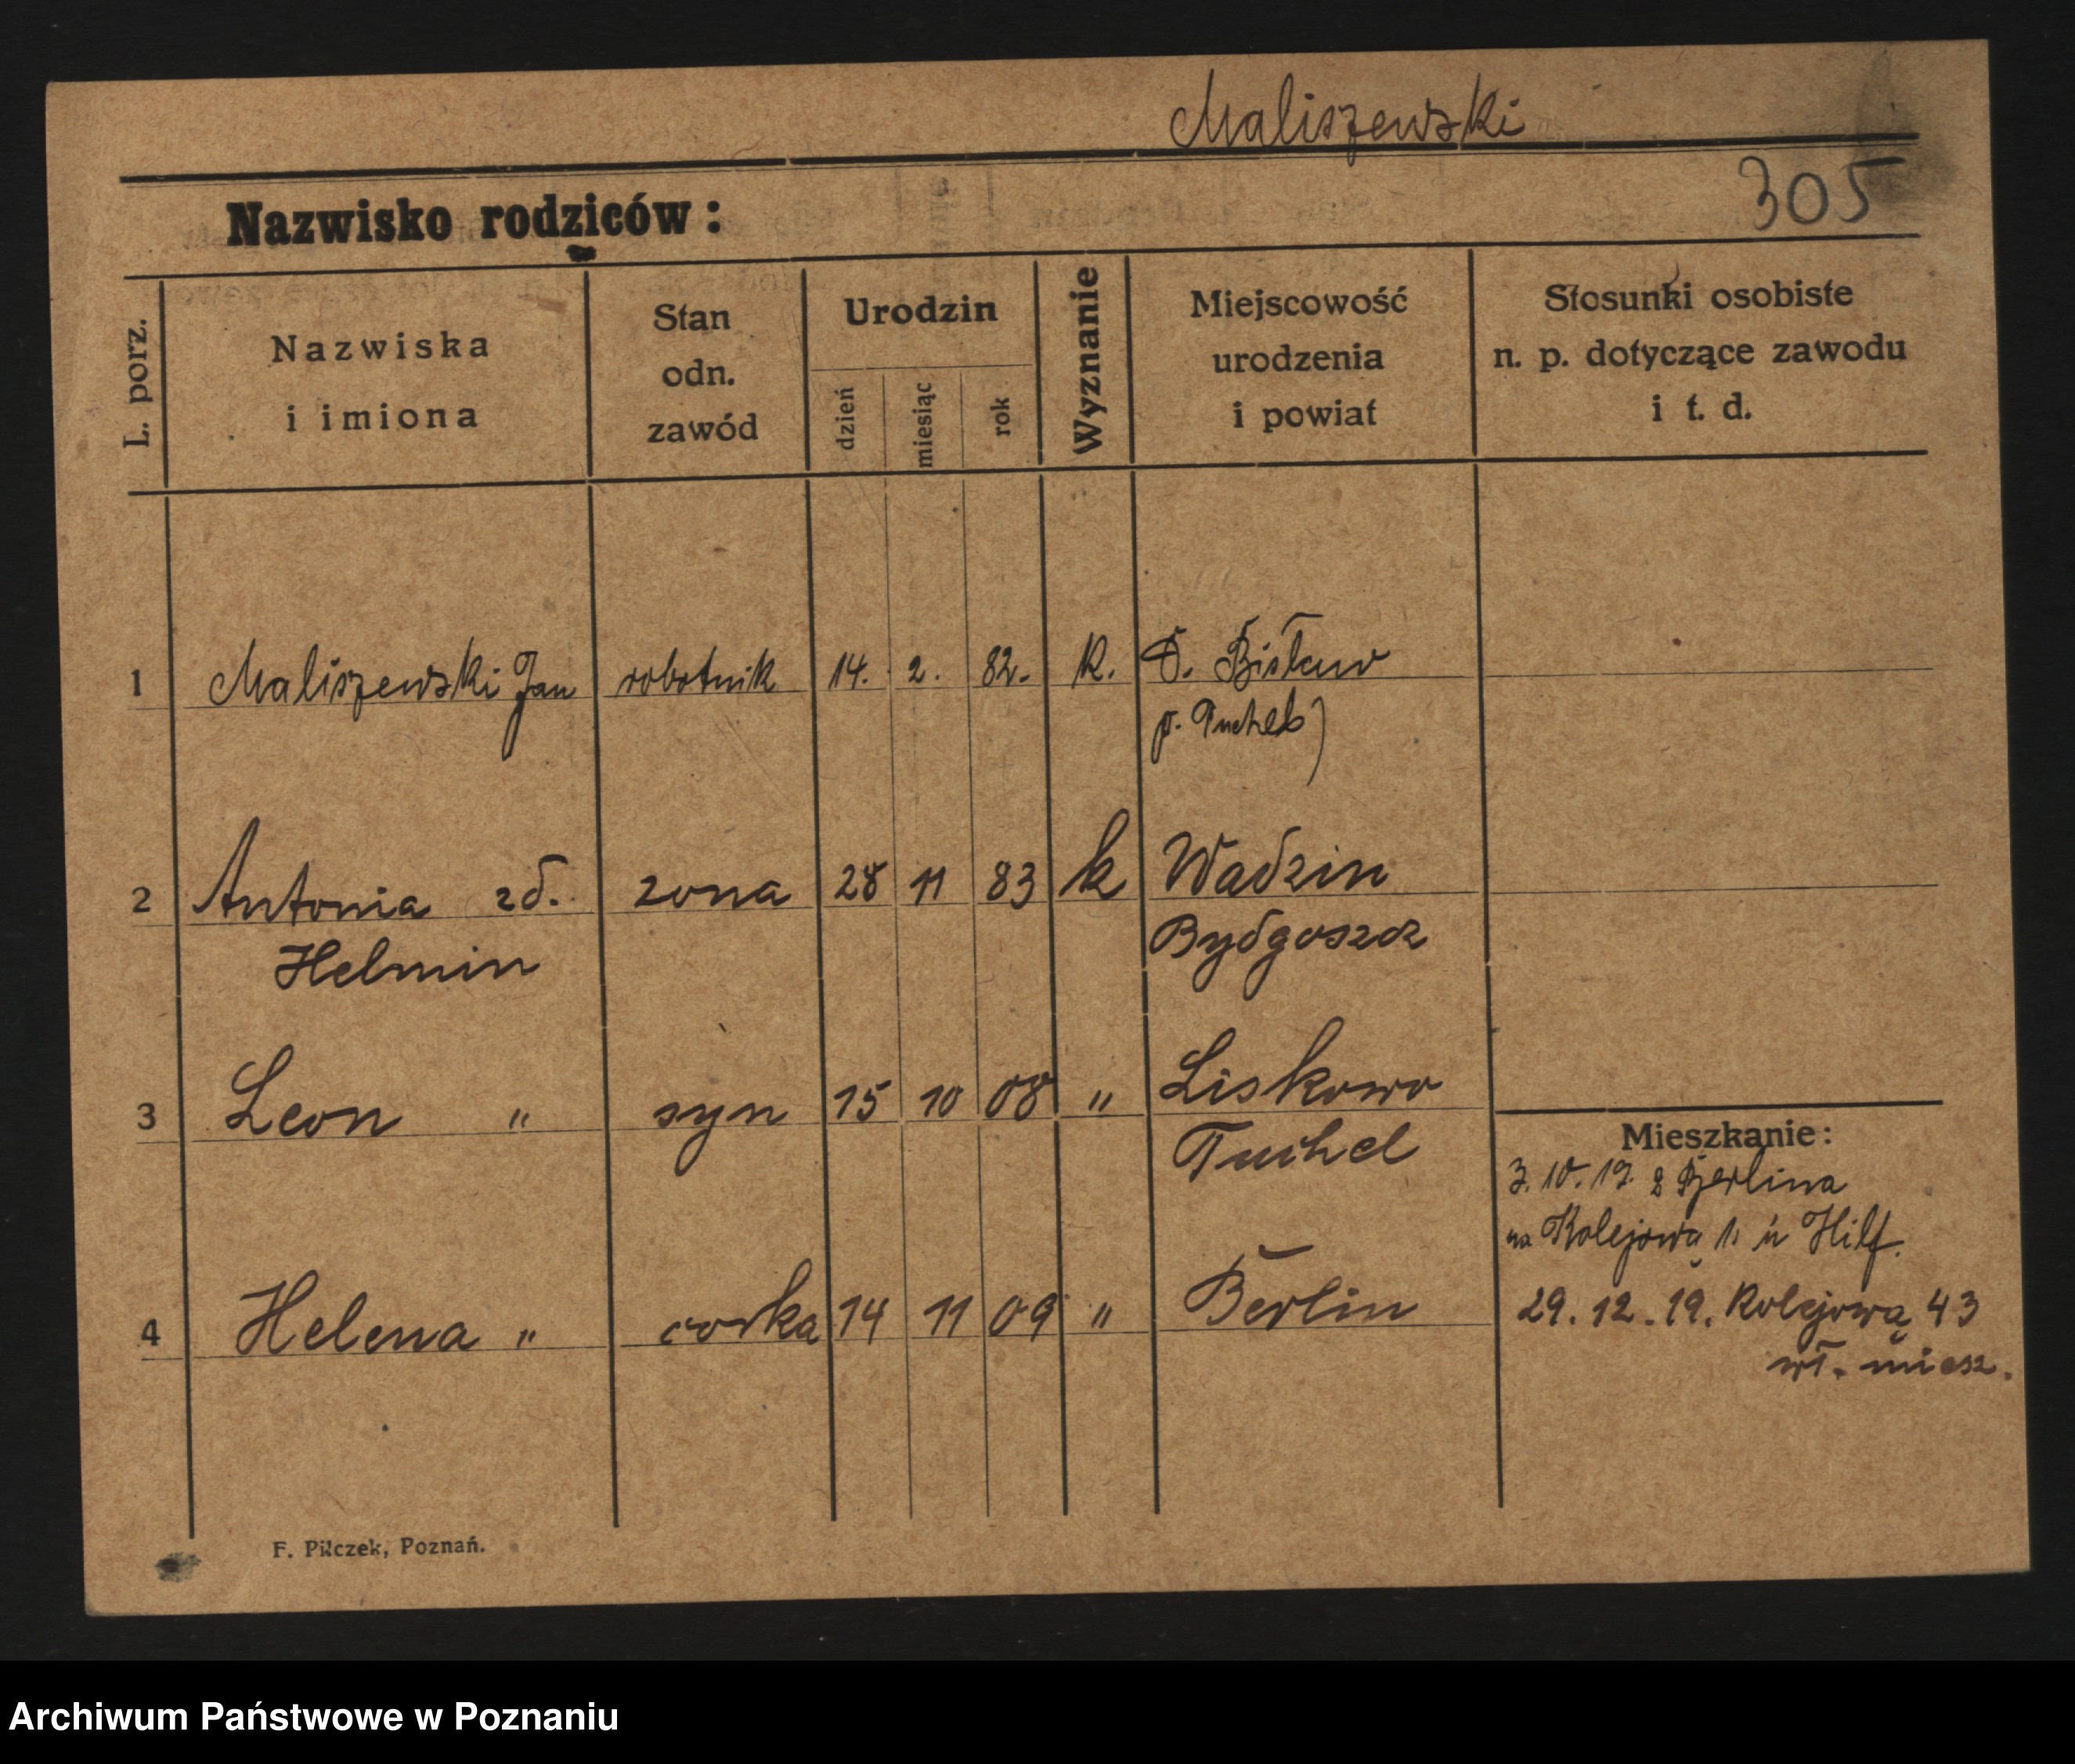 Maliszewski
305
Nazwisko rodziców:
L. porz.
Nazwiska
i imiona
Stan
odn.
zawód
Urodzin
dzień
miesiąc
rok
Wyznanie
Miejscowość
urodzenia
i powiat
Stosunki osobiste
n. p. dotyczące zawodu
i t. d.
1 Maliszewski Jan robotnik 14. 2. 82. k. Bisław
p. Tuchel)
2 Antonia zd. zona 28 11 83 k Wadzin
Helmin Bydgoszcz
3 Leon " syn 15 10 08 " Liskowo
Tuchel
4 Helena " corka 14 11 09 " Berlin
Mieszkanie:
3. 10. 19. z Berlina
na Kolejową 1. u Hilf.
29. 12. 19. Kolejowa 43
wł. miesz.
F. Pilczek, Poznań.
Archiwum Państwowe w Poznaniu